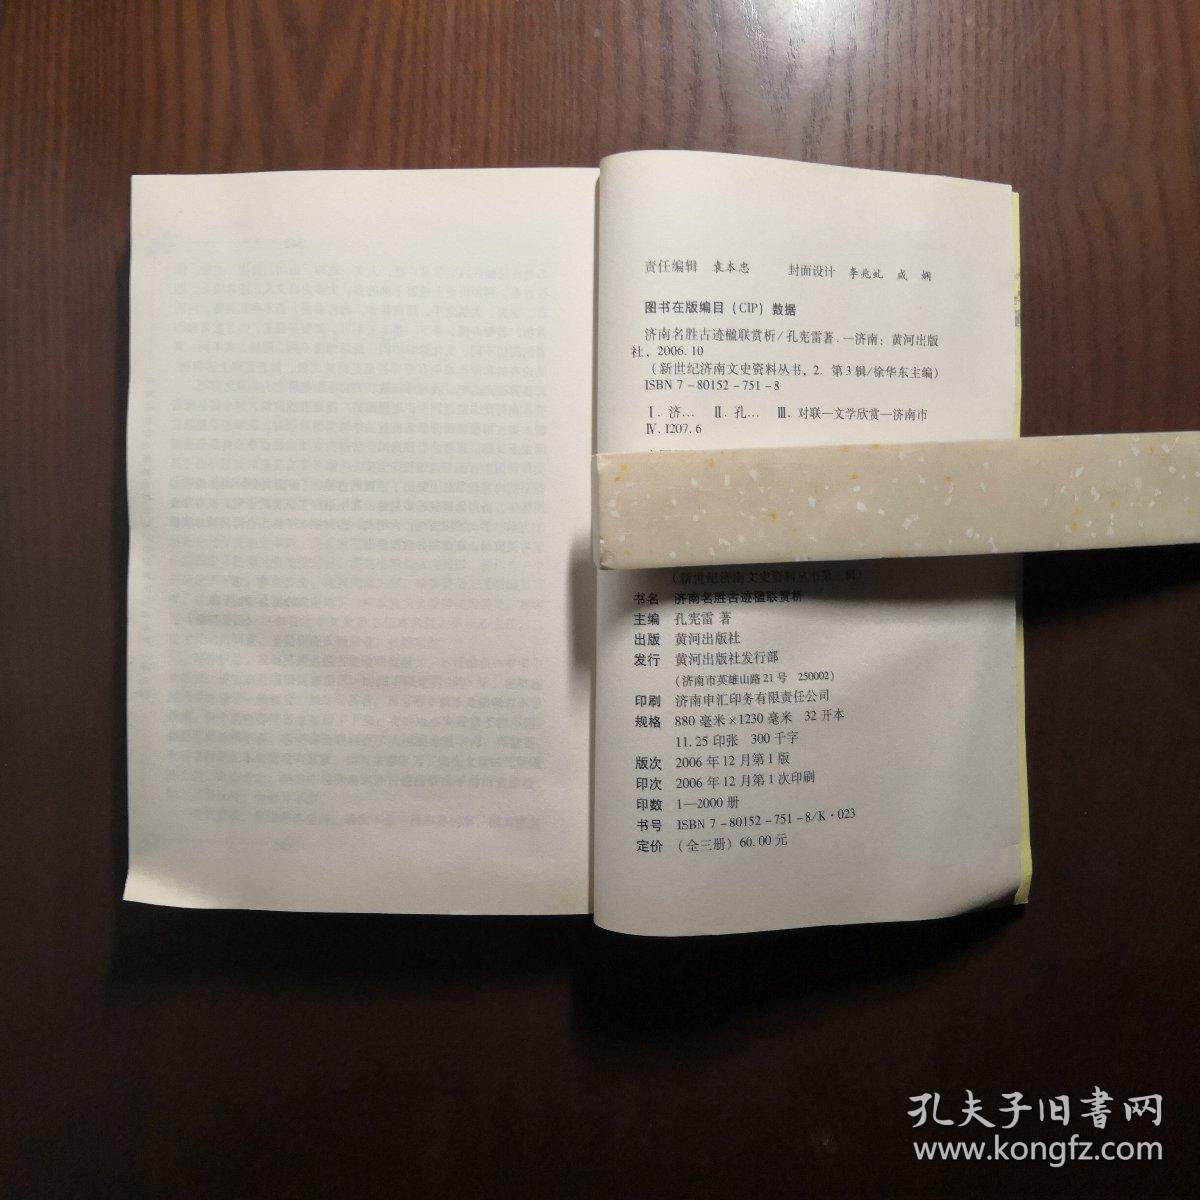 责任编辑 袁本忠 封面设计 李兆虬 戚 娴
图书在版编目(CIP)数据
济南名胜古迹楹联赏析/孔宪雷著.—济南:黄河出版
社,2006.10
(新世纪济南文史资料丛书,2.第3辑/徐华东主编)
ISBN 7-80152-751-8
Ⅰ.济… Ⅱ.孔… Ⅲ.对联—文学欣赏—济南市
Ⅳ.I207.6
(新世纪济南文史资料丛书第三辑)
书名 济南名胜古迹楹联赏析
主编 孔宪雷 著
出版 黄河出版社
发行 黄河出版社发行部
(济南市英雄山路21号 250002)
印刷 济南申汇印务有限责任公司
规格 880毫米×1230毫米 32开本
11.25印张 300千字
版次 2006年12月第1版
印次 2006年12月第1次印刷
印数 1—2000册
书号 ISBN 7-80152-751-8/K·023
定价 (全三册)60.00元
孔夫子旧書网
www.kongfz.com